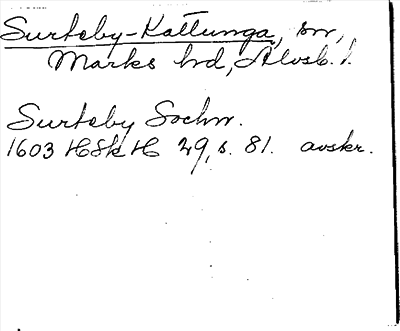 Surteby-Kattunga, sn,
Marks hd, Älvsb. l.
Surteby Sochn.
1603 HSkH 29, s. 81. avskr.